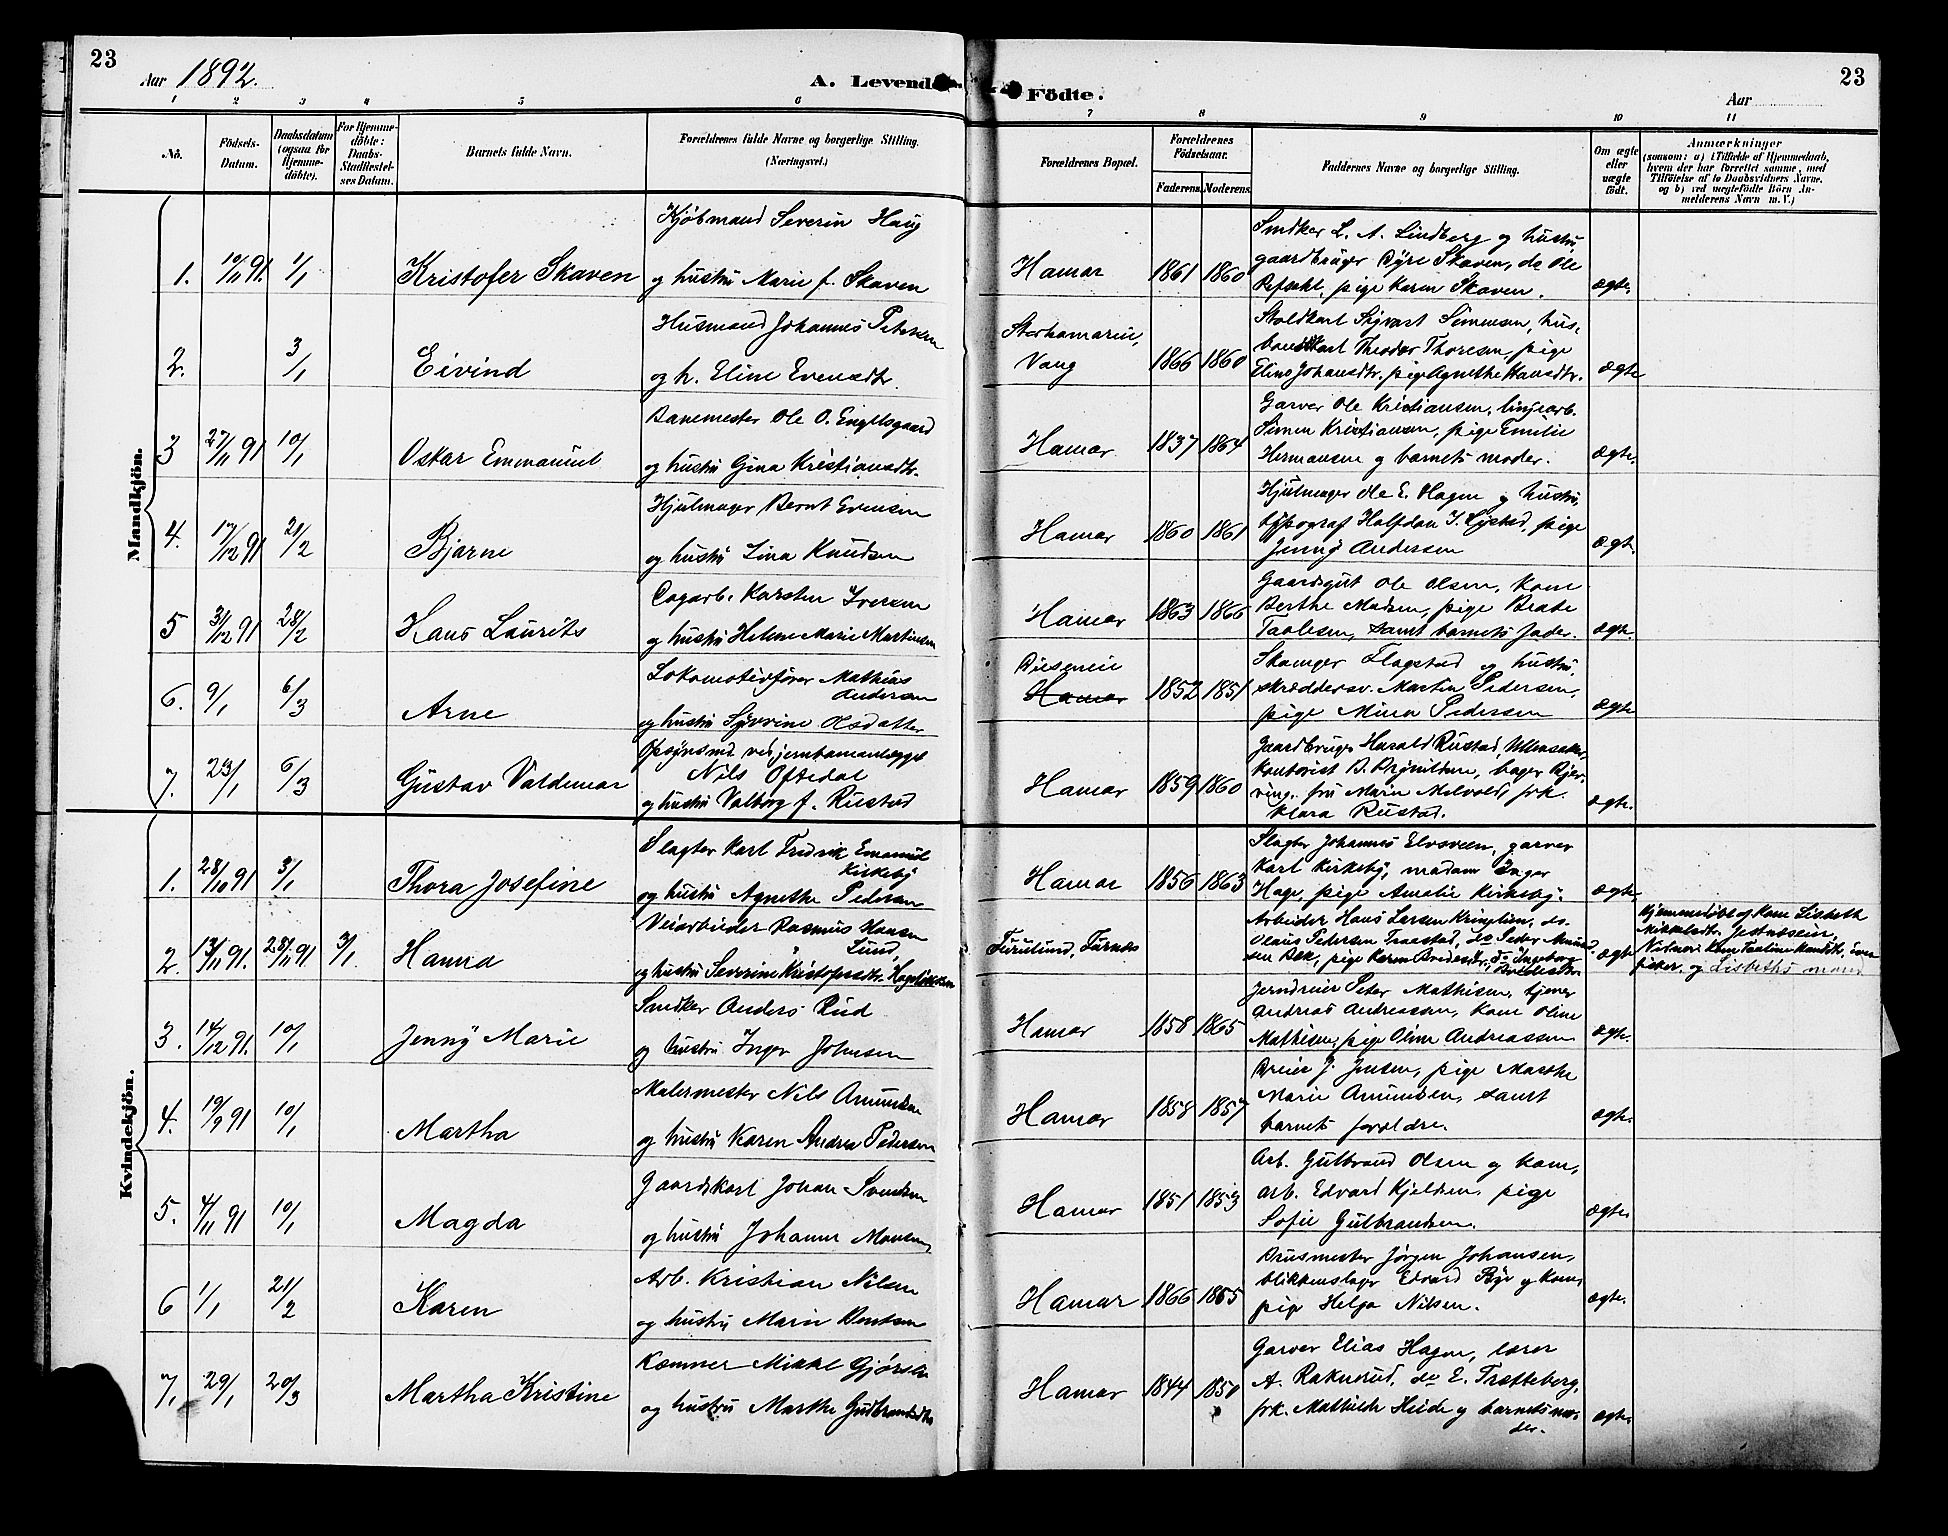 23
Aar 1892.
A. Levende
Födte.
Aar
23
1 2 3 4 5 6 7 8 9 10 11
No.
Födsels-Datum.
Daabsdatum (ogsaa for Hjemmedöbte).
For Hjemmedöbte: Daabs-Stadfæstelses Datum.
Barnets fulde Navn.
Forældrenes fulde Navne og borgerlige Stilling. (Næringsvei.)
Forældrenes Bopæl.
Forældrenes Födselsaar.
Faderens. Moderens.
Faddernes Navne og borgerlige Stilling.
Om ægte eller uægte födt.
Anmærkninger
(saasom: a) i Tilfælde af Hjemmedaab,
hvem der har forrettet samme, med
Tilföielse af to Daabsvidners Navne,
og b) ved uægtefödte Börn An-
melderens Navn m. V.)
Mandkjön.
1. 10/11 91. 1/1 Kristofer Skaven
Kjøbmand Severin Haug
og hustru Marie f. Skaven
Hamar 1861 1860
Snedker L. A. Lindberg og hustru,
gaardbruger Skaven, do Ole
pige Karen Skaven.
ægte.
2. 3/1 Eivind
Husmand Johannes Petersen
og h. Eline Evensdtr.
Storhamareie,
Vang
1866 1860
Staldkarl Sigvart Simensen, hus-
bondkarl Theodor Thoresen, pige
Eline Johansdtr. pige Agnethe Hansdtr.
ægte
3 27/11 91 10/1 Oskar Emmanuel
Banemester Ole O. Engelsgaard
og hustru Gina Kristiansdtr.
Hamar 1837 1864
Garver Ole Kristiansen, linjearb.
Simen Kristiansen, pige Emilie
Hermansen og barnets moder.
ægte.
4. 17/12 91 21/2 Bjarne
Hjulmager Bernt Evensen
og hustru Lina Knudsen
Hamar 1860 1861
Hjulmager Ole E. Hagen og hustru,
typograf Halfdan J. Lystad, pige
Jenny Andersen
ægte.
5 31/12 91 28/2 Hans Laurits
Dagarb. Karsten Iversen
og hustru Helene Marie Martinsen
Hamar 1863 1866
Gaardsgut Ole Olsen, kone
Berthe Madsen, pige Beate
Paulsen, samt barnets fader.
ægte.
6. 9/1 6/3 Arne
Lokomotivfører Mathias
Andersen
og hustru Syverine Olsdatter
Hamar 1852 1851
Skomager Flagstad og hustru,
skræddersv. Martin Pedersen,
pige Mina Pedersen
ægte
7. 23/1 6/3 Gustav Valdemar
Opsynsmd. ved jernbaneanlægget
Nils Oftedal
og hustru Valborg f. Rustad
Hamar 1859 1860
Gaardbruger Harald Rustad, Ullensaker,
kontorist B. Brynildsen, bager
fru Marie frk.
Klara Rustad.
ægte.
Kvindekjön.
1. 28/10 91 3/1 Thora Josefine
Slagter Karl Fredrik Emanuel
Kirkeby
og hustru Agnethe Pedersen
Hamar 1856 1863
Slagter Johannes Elvsveen, garver
Karl Kirkeby, madam Inger
Hage, pige Amalie Kirkeby.
ægte
2. 13/11 91. 28/11 91 3/1 Hanna
Veiarbeider Rasmus Hansen
Lund,
og hustru Severine Kristofersdtr.
Furulund, Furnes
Arbeider Hans Larsen Kringlien, do.
Olaus Pedersen do Peder
pige Karen do Ingeborg
ægte
Hjemmedøbt af kone Lisbeth
og Lisbeths mand
3. 14/12 91. 10/1 Jenny Marie
Snedker Anders Rud
og hustru Inger Johnsen
Hamar 1858 1865
Jerndreier Peter Mathisen, tjener
Andreas Andreassen, kone Oline
Mathisen, pige Oline Andreassen
ægte.
4. 19/9 91 10/1 Martha
Malermester Nils Amundsen
og hustru Karen Andrea Pedersen
Hamar 1858 1857
Dreier J. Jensen, pige Marthe
Marie Amundsen, samt
barnets forældre.
ægte.
5. 4/11 91 10/1 Magda
Gaardskarl Johan Svendsen
og hustru Johanne Monsen,
Hamar 1851 1853
Arb. Gulbrand Olsen og kone,
arb. Edvard Kjeldsen, pige
Sofie Gulbrandsen.
ægte.
6 1/1 21/2 Karen
Arb. Kristian Nilsen
og hustru Marie Bentsen
Hamar 1866 1865
Brusmester Jørgen Johansen,
blikkenslager Edvard Rye og kone,
pige Helga Nilsen.
ægte.
7. 29/1 20/3 Martha Kristine
Kæmner Mikkel Gjørslie
og hustru Marthe Gudbrandsdtr.
Hamar 1844 1850
Garver Elias Hagen, lærer
A. Raknerud, do E. Trætteberg,
frk. Mathilde Heide og barnets mo-
der.
ægte.